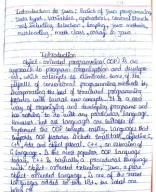 Introduction to Java : Basics of Java programming
Data types, variables, operators, control structures
including selection, looping, java methods,
overloading, math class, arrays in java.
Introduction
Object-oriented programming (OOP) is an
approach to program organization and develop-
ment, which attempts to eliminate some of the
pitfalls of conventional programming methods by
incorporating the best of structured programming
features with several new concepts. It is a new
way of organizing and developing programs and
has nothing to do with any particular language.
However, not all languages are suitable to
implement the OOP concepts easily. Languages that
support OOP features include Smalltalk, Objective C,
C++, Ada and object pascal. C++, an extension of
C language, is the most popular OOP language
today. C++ is basically a procedural language
with object-oriented extension. Java, a pure
object-oriented language, is one of the recent
languages added to this list, the latest one